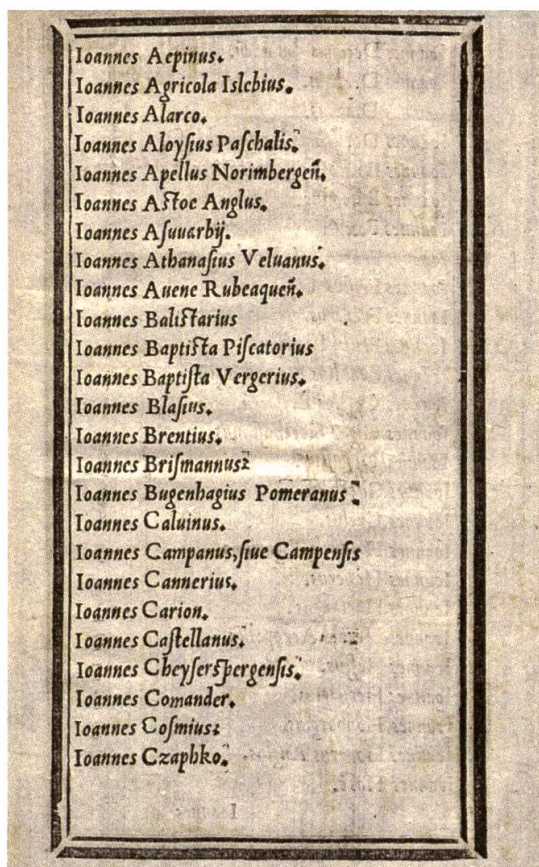 Ioannes Aepinus.
Ioannes Agricola Islebius.
Ioannes Alarco.
Ioannes Aloyſius Paſchalis.
Ioannes Apellus Norimbergen̄.
Ioannes Aſtoe Anglus.
Ioannes Aſuuarbij.
Ioannes Athanaſius Veluanus.
Ioannes Auene Rubeaquen̄.
Ioannes Baliſtarius
Ioannes Baptiſta Piſcatorius
Ioannes Baptiſta Vergerius.
Ioannes Blaſius.
Ioannes Brentius.
Ioannes Briſmannus:
Ioannes Bugenhagius Pomeranus
Ioannes Caluinus.
Ioannes Campanus, ſiue Campenſis
Ioannes Cannerius.
Ioannes Carion.
Ioannes Caſtellanus.
Ioannes Cheyſerſpergenſis.
Ioannes Comander.
Ioannes Coſmius:
Ioannes Czaphko.